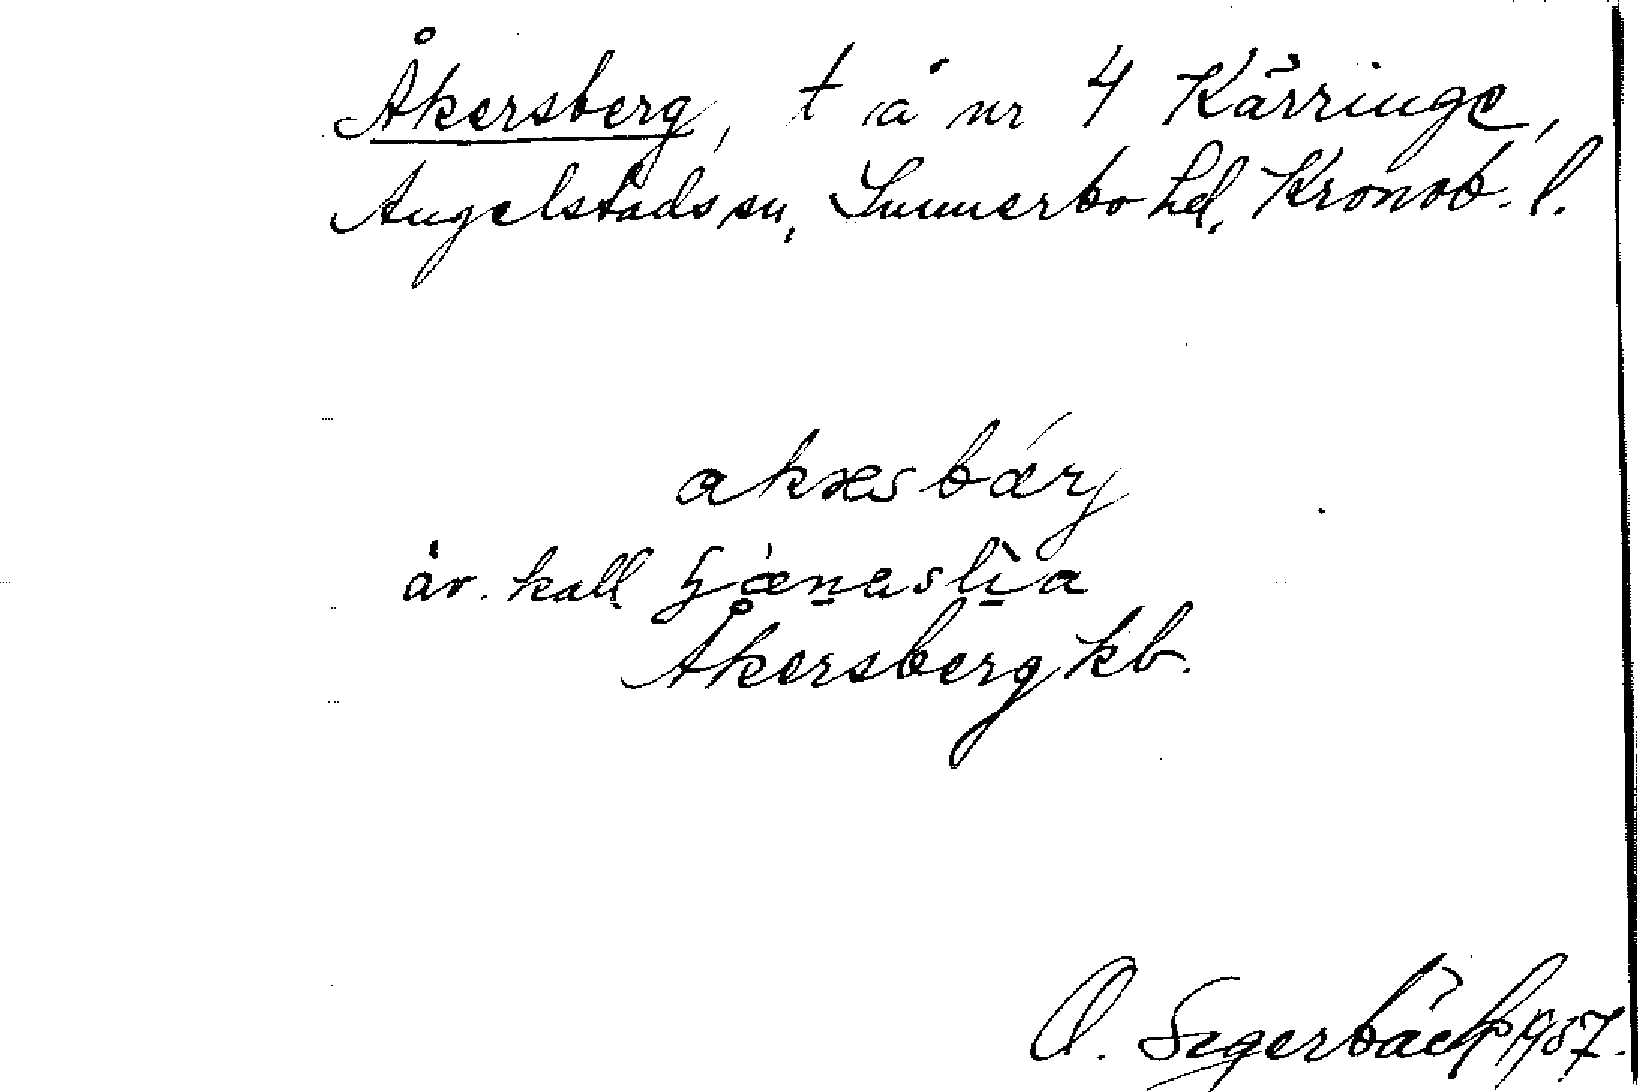 Åkersberg, t å nr 4 Kärringe,
Angelstads sn, Sunnerbo hd, Kronob. l.
akæsbærj
äv. kall
Åkersberg kb.
O. Segerbäck 1957.